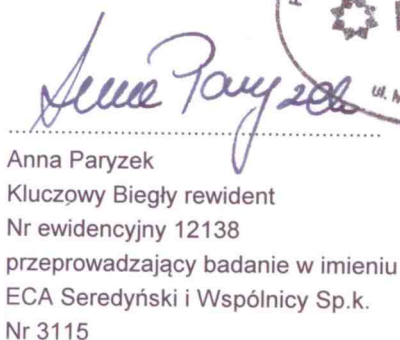 Anna Paryzek
Anna Paryzek
Kluczowy Biegły rewident
Nr ewidencyjny 12138
przeprowadzający badanie w imieniu
ECA Seredyński i Wspólnicy Sp.k.
Nr 3115